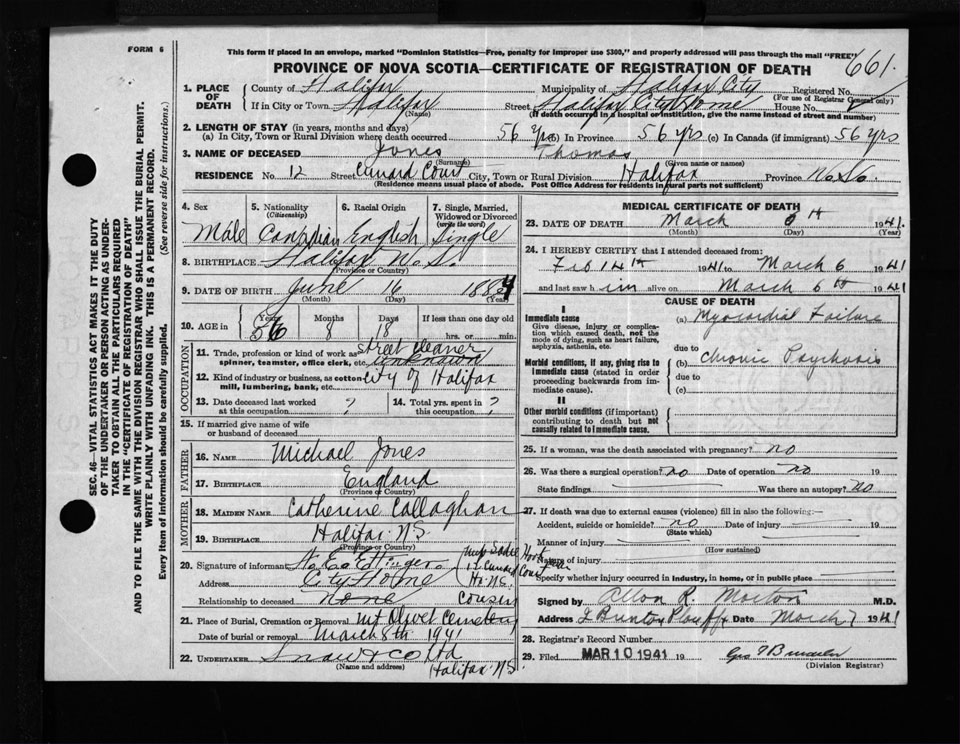 FORM 6
This form if placed in an envelope, marked "Dominion Statistics—Free, penalty for improper use $300," and properly addressed will pass through the mail "FREE"
661.
PROVINCE OF NOVA SCOTIA—CERTIFICATE OF REGISTRATION OF DEATH
1. PLACE OF DEATH
County of Halifax Municipality of Halifax City Registered No.
(For use of Registrar General only)
If in City or Town Halifax Street Halifax City Home House No.
(Name) (If death occurred in a hospital or institution, give the name instead of street and number)
2. LENGTH OF STAY (in years, months and days)
(a) In City, Town or Rural Division where death occurred 56 yrs (b) In Province 56 yrs (c) In Canada (if immigrant) 56 yrs
3. NAME OF DECEASED Jones Thomas
(Surname) (Given name or names)
RESIDENCE No. 12 Street Cunard Court City, Town or Rural Division Halifax Province N.S.
(Residence means usual place of abode. Post Office Address for residents in rural parts not sufficient)
4. Sex
Male
5. Nationality
(Citizenship)
Canadian
6. Racial Origin
English
7. Single, Married, Widowed or Divorced
(write the word)
Single
8. BIRTHPLACE Halifax N.S.
(Province or Country)
9. DATE OF BIRTH June 16 1884
(Month) (Day) (Year)
10. AGE in Years Months Days If less than one day old
56 8 18 hrs. or min.
OCCUPATION
11. Trade, profession or kind of work as spinner, teamster, office clerk, etc. street cleaner unknown
12. Kind of industry or business, as cotton mill, lumbering, bank, etc. City of Halifax
13. Date deceased last worked at this occupation ?
14. Total yrs. spent in this occupation ?
15. If married give name of wife or husband of deceased
FATHER
16. NAME Michael Jones
17. BIRTHPLACE England
(Province or Country)
MOTHER
18. MAIDEN NAME Catherine Callaghan
19. BIRTHPLACE Halifax N.S.
(Province or Country)
20. Signature of informant
Address City Home
Relationship to deceased none
12 Cunard Court
Cousin
21. Place of Burial, Cremation or Removal Mt Olivet Cemetery
Date of burial or removal March 8th 1941
22. UNDERTAKER Snow & Co Ltd
(Name and address) Halifax N.S.
MEDICAL CERTIFICATE OF DEATH
23. DATE OF DEATH March 6th 1941.
(Month) (Day) (Year)
24. I HEREBY CERTIFY that I attended deceased from:
Feb 14th 1941 to March 6 1941
and last saw him alive on March 6th 1941
CAUSE OF DEATH
I
Immediate cause
Give disease, injury or complication which caused death, not the mode of dying, such as heart failure, asphyxia, asthenia, etc.
(a) Myocardial Failure
due to
Morbid conditions, if any, giving rise to immediate cause (stated in order proceeding backwards from immediate cause).
(b) Chronic Psychosis
due to
(c)
II
Other morbid conditions (if important) contributing to death but not causally related to immediate cause.
25. If a woman, was the death associated with pregnancy? no
26. Was there a surgical operation? no Date of operation no 19
State findings Was there an autopsy? no
27. If death was due to external causes (violence) fill in also the following:—
Accident, suicide or homicide? no Date of injury 19
(State which)
Manner of injury
(How sustained)
Nature of injury
Specify whether injury occurred in industry, in home, or in public place
Signed by Allan R. Morton M.D.
Address Date March 7 1941
28. Registrar's Record Number
29. Filed MAR 10 1941 19
(Division Registrar)
SEC. 46—VITAL STATISTICS ACT MAKES IT THE DUTY
OF THE UNDERTAKER OR PERSON ACTING AS UNDER-
TAKER TO OBTAIN ALL THE PARTICULARS REQUIRED
IN THE "CERTIFICATE OF REGISTRATION OF DEATH"
AND TO FILE THE SAME WITH THE DIVISION REGISTRAR WHO SHALL ISSUE THE BURIAL PERMIT.
WRITE PLAINLY WITH UNFADING INK. THIS IS A PERMANENT RECORD.
Every item of information should be carefully supplied. (See reverse side for instructions.)